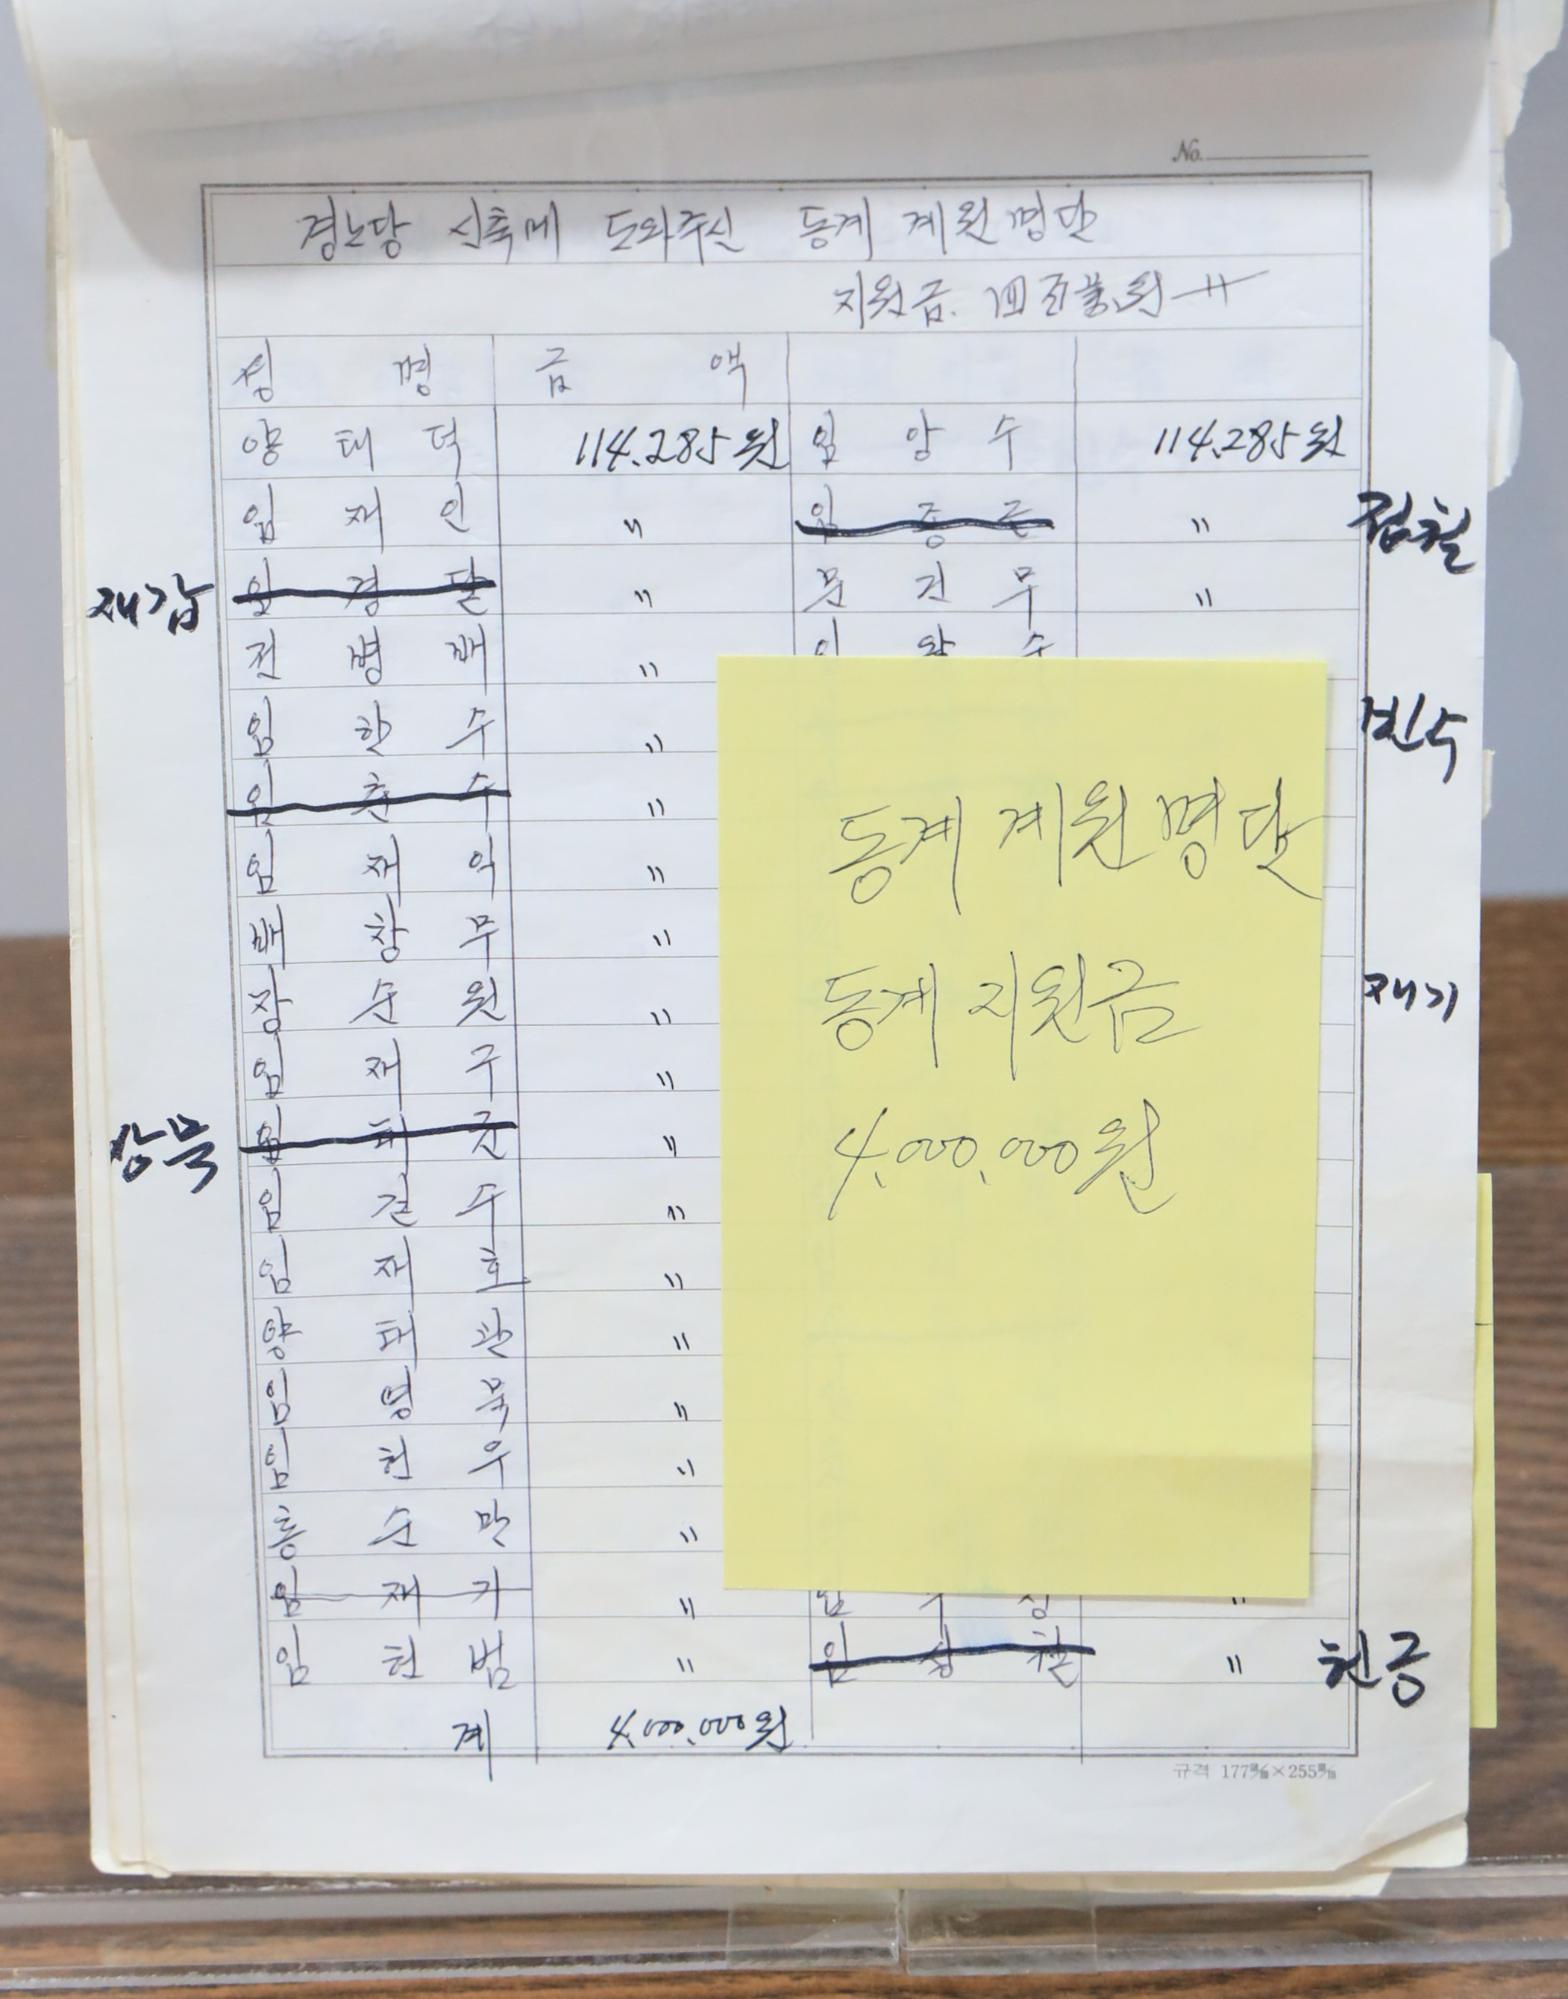 No.
경노당 신축에 도와주신 동계 계원명단
지원금. 四百萬원
성 명 금 액
양 태 덕 114.285원 임 암 수 114.285원
임 재 인 〃 임 종 근 〃 점철
재갑 임 경 달 〃 문 건 무 〃
전 병 배 〃
임 한 수 〃 빈수
임 춘 수 〃
임 재 익 〃
배 창 무 〃
장 순 원 〃 재기
임 재 구 〃
상묵 임 태 근 〃
임 걸 수 〃
임 재 호 〃
양 태 환 〃
임 영 묵 〃
임 헌 우 〃
홍 순 만 〃
임 재 가 〃 임 수 〃
임 헌 범 〃 임 상 철 〃 헌긍
계 4,000,000원
동계 계원명단
동계 지원금
4,000,000원
규격 177㎜×255㎜